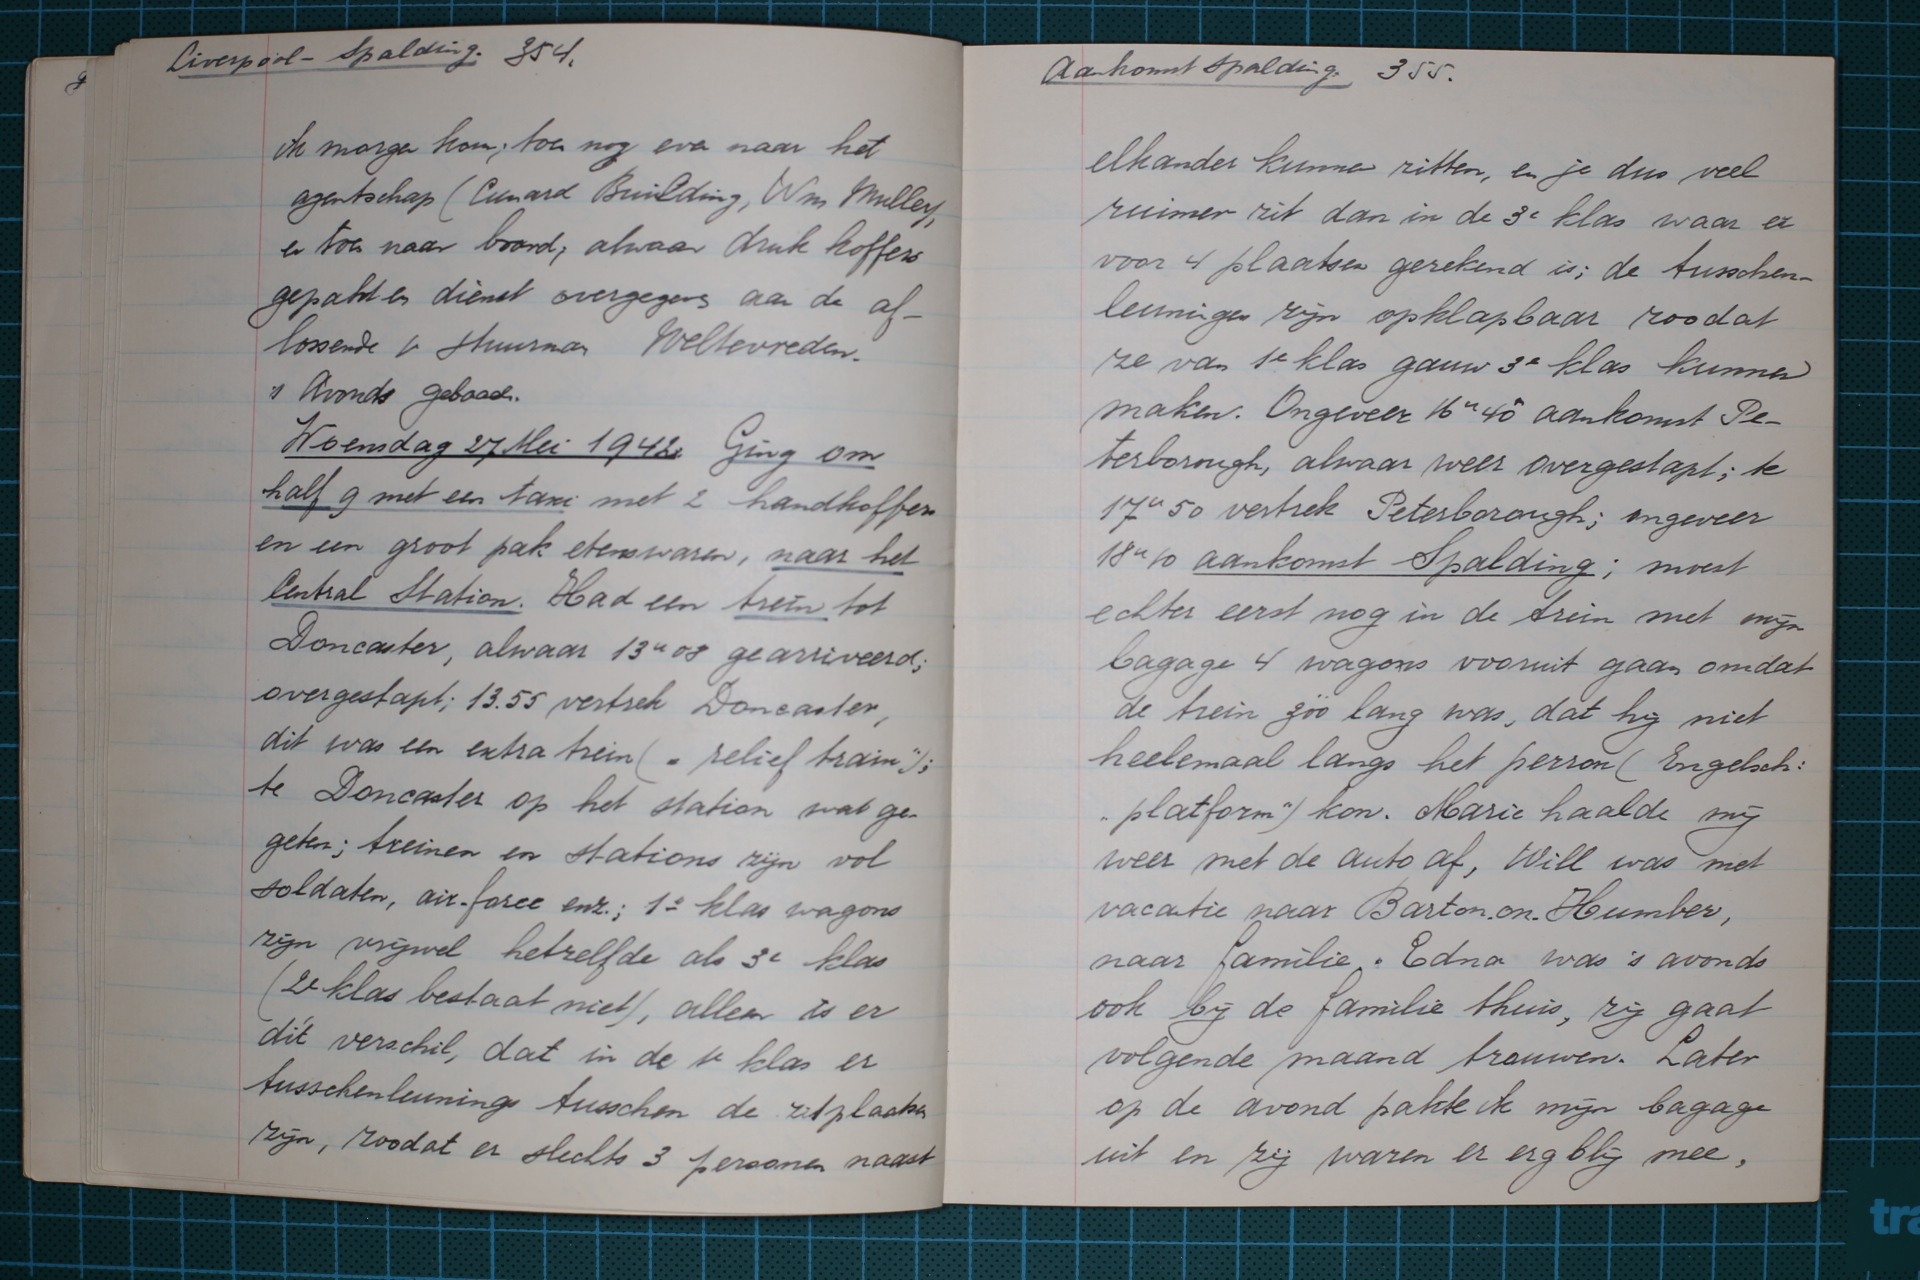 Liverpool - Spalding. 354.
ik morgen kom; toen nog even naar het
agentschap (Cunard Building, Wm Muller),
en toen naar boord, alwaar druk koffers
gepakt en dienst overgegeven aan de af-
lossende 1e stuurman Weltevreden.
's Avonds gebaad.
Woensdag 27 Mei 1942. Ging om
half 9 met een taxi met 2 handkoffers
en een groot pak etenswaren, naar het
Central Station. Had een trein tot
Doncaster, alwaar 13u08 gearriveerd;
overgestapt; 13.55 vertrek Doncaster,
dit was een extra trein („relief train");
te Doncaster op het station wat ge-
geten; treinen en stations zijn vol
soldaten, air-force enz.; 1e klas wagons
zijn vrijwel hetzelfde als 3e klas
(2e klas bestaat niet), alleen is er
dit verschil, dat in de 1e klas er
tusschenleunings tusschen de zitplaatsen
zijn, zoodat er slechts 3 personen naast
Aankomst Spalding. 355.
elkander kunnen zitten, en je dus veel
ruimer zit dan in de 3e klas waar er
voor 4 plaatsen gerekend is; de tusschen-
leuningen zijn opklapbaar zoodat
ze van 1e klas gauw 3e klas kunnen
maken. Ongeveer 16u40 aankomst Pe-
terborough, alwaar weer overgestapt; te
17u50 vertrek Peterborough; ongeveer
18u40 aankomst Spalding; moest
echter eerst nog in de trein met mijn
bagage 4 wagons vooruit gaan omdat
de trein zóó lang was, dat hij niet
heelemaal langs het perron (Engelsch:
„platform") kon. Marie haalde mij
weer met de auto af, Will was met
vacatie naar Barton-on-Humber,
naar familie. Edna was 's avonds
ook bij de familie thuis, zij gaat
volgende maand trouwen. Later
op de avond pakte ik mijn bagage
uit en zij waren er erg blij mee,
tra